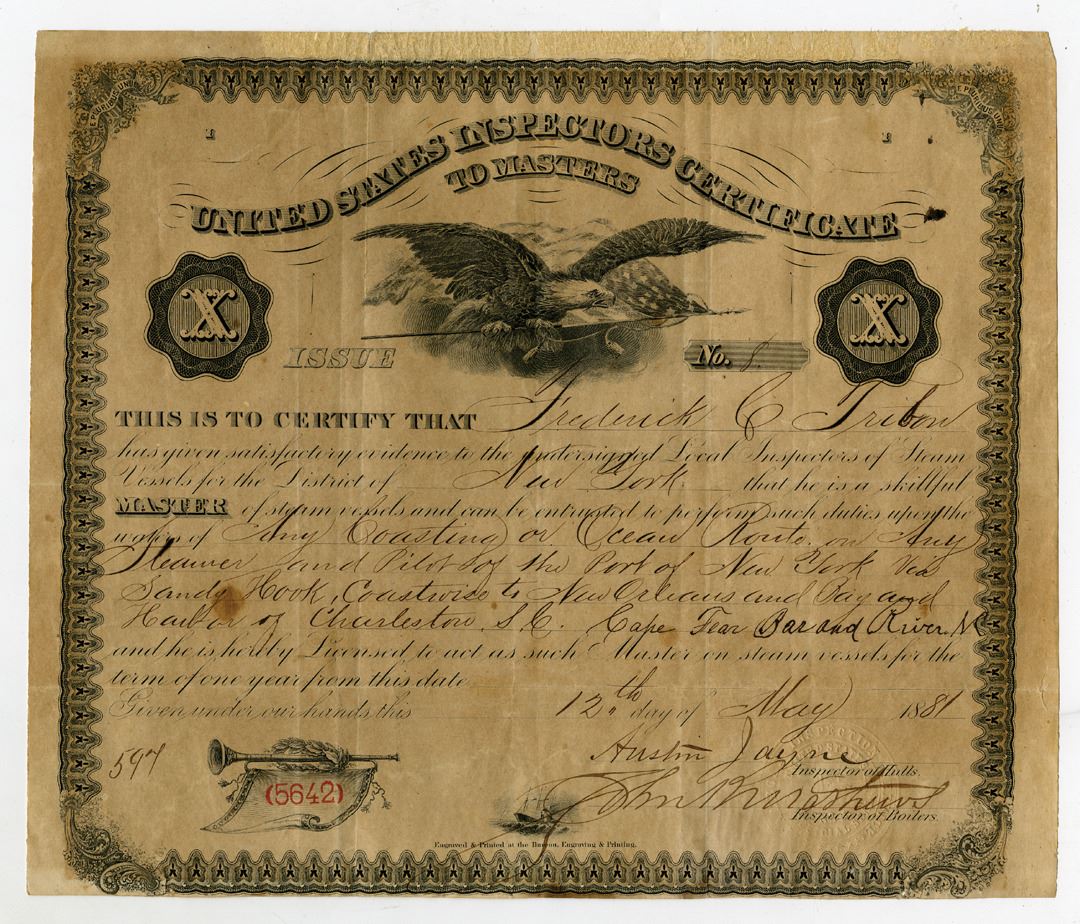 E PLURIBUS UNUM
E PLURIBUS UNUM
1 1
UNITED STATES INSPECTORS CERTIFICATE
TO MASTERS
X X
ISSUE No. 8.
THIS IS TO CERTIFY THAT Frederick C Tribou
has given satisfactory evidence to the undersigned Local Inspectors of Steam
Vessels for the District of New York that he is a skillful
MASTER of steam vessels and can be entrusted to perform such duties upon the
waters of Any Coasting or Ocean Route, on Any
Steamer, and Pilot of the Port of New York Via
Sandy Hook, Coastwise to New Orleans and Bay and
Harbor of Charleston S.C. Cape Fear Bar and River N
and he is hereby Licensed to act as such Master on steam vessels for the
term of one year from this date
Given under our hands this 12th day of May 1881
597
Austin Jayne
Inspector of Hulls.
(5642)
John K Matthews
Inspector of Boilers.
Engraved & Printed at the Bureau, Engraving & Printing.